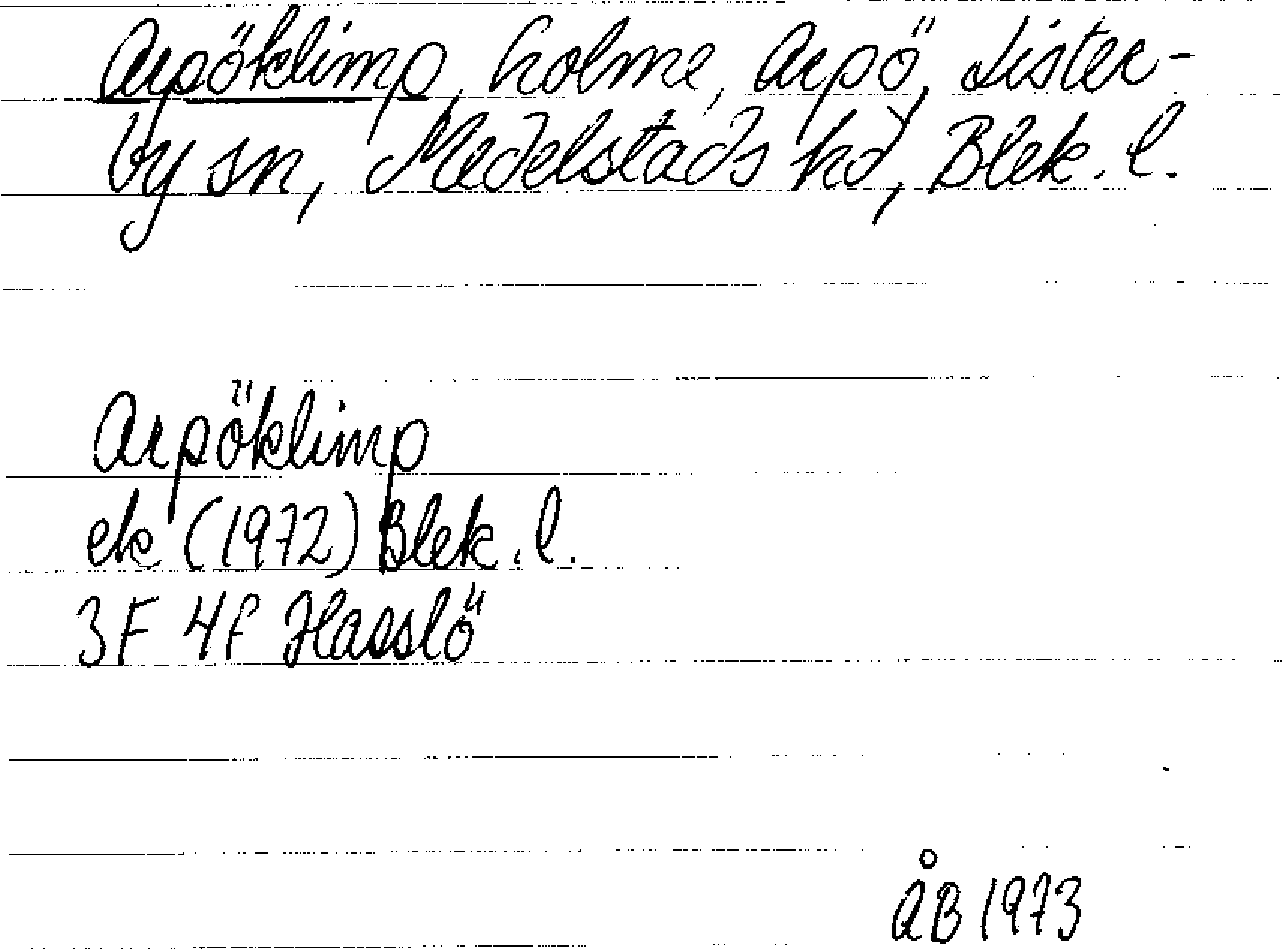 Arpöklimp, holme, Arpö, Lister-
by sn, Medelstads hd, Blek. l.
Arpöklimp
ek (1972) Blek. l.
3F 4f Hasslö
ÅB 1973